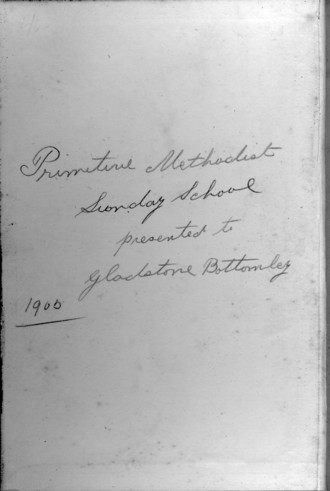 Primitive Methodist
Sunday School
presented to
Gladstone Bottomley
1900